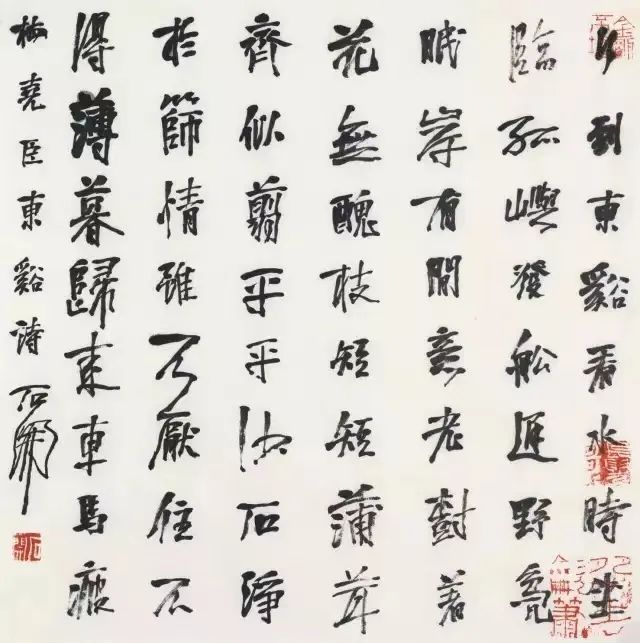 行到東谿看水時坐
臨孤嶼發船遲野鳧
眠岸有閒意老樹著
花無醜枝短短蒲茸
齊似翦平平沙石淨
於篩情雖不厭住不
得薄暮歸來車馬疲
梅堯臣東谿詩 石